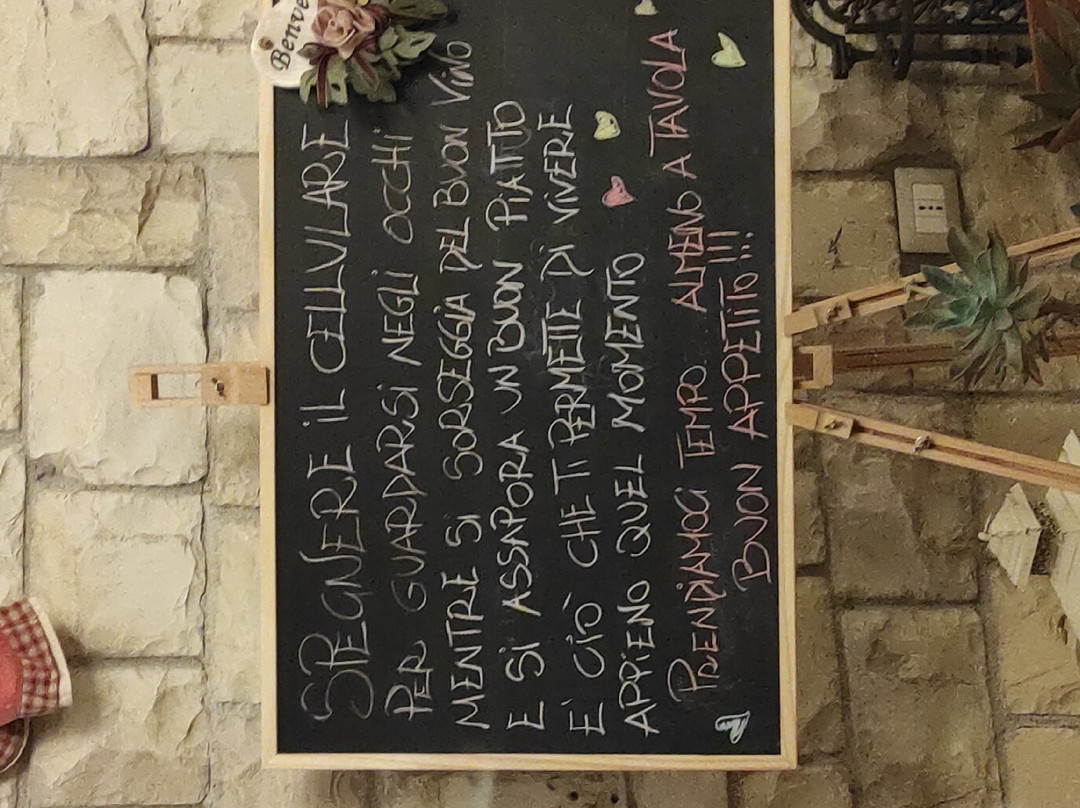 Benve
SPEGNERE IL CELLULARE
PER GUARDARSI NEGLI OCCHI
MENTRE SI SORSEGGIA DEL BUON VINO
E SI ASSAPORA UN BUON PIATTO
E' CIÒ CHE TI PERMETTE DI VIVERE
APPIENO QUEL MOMENTO
PRENDIAMOCI TEMPO ALMENO A TAVOLA
BUON APPETITO!!!